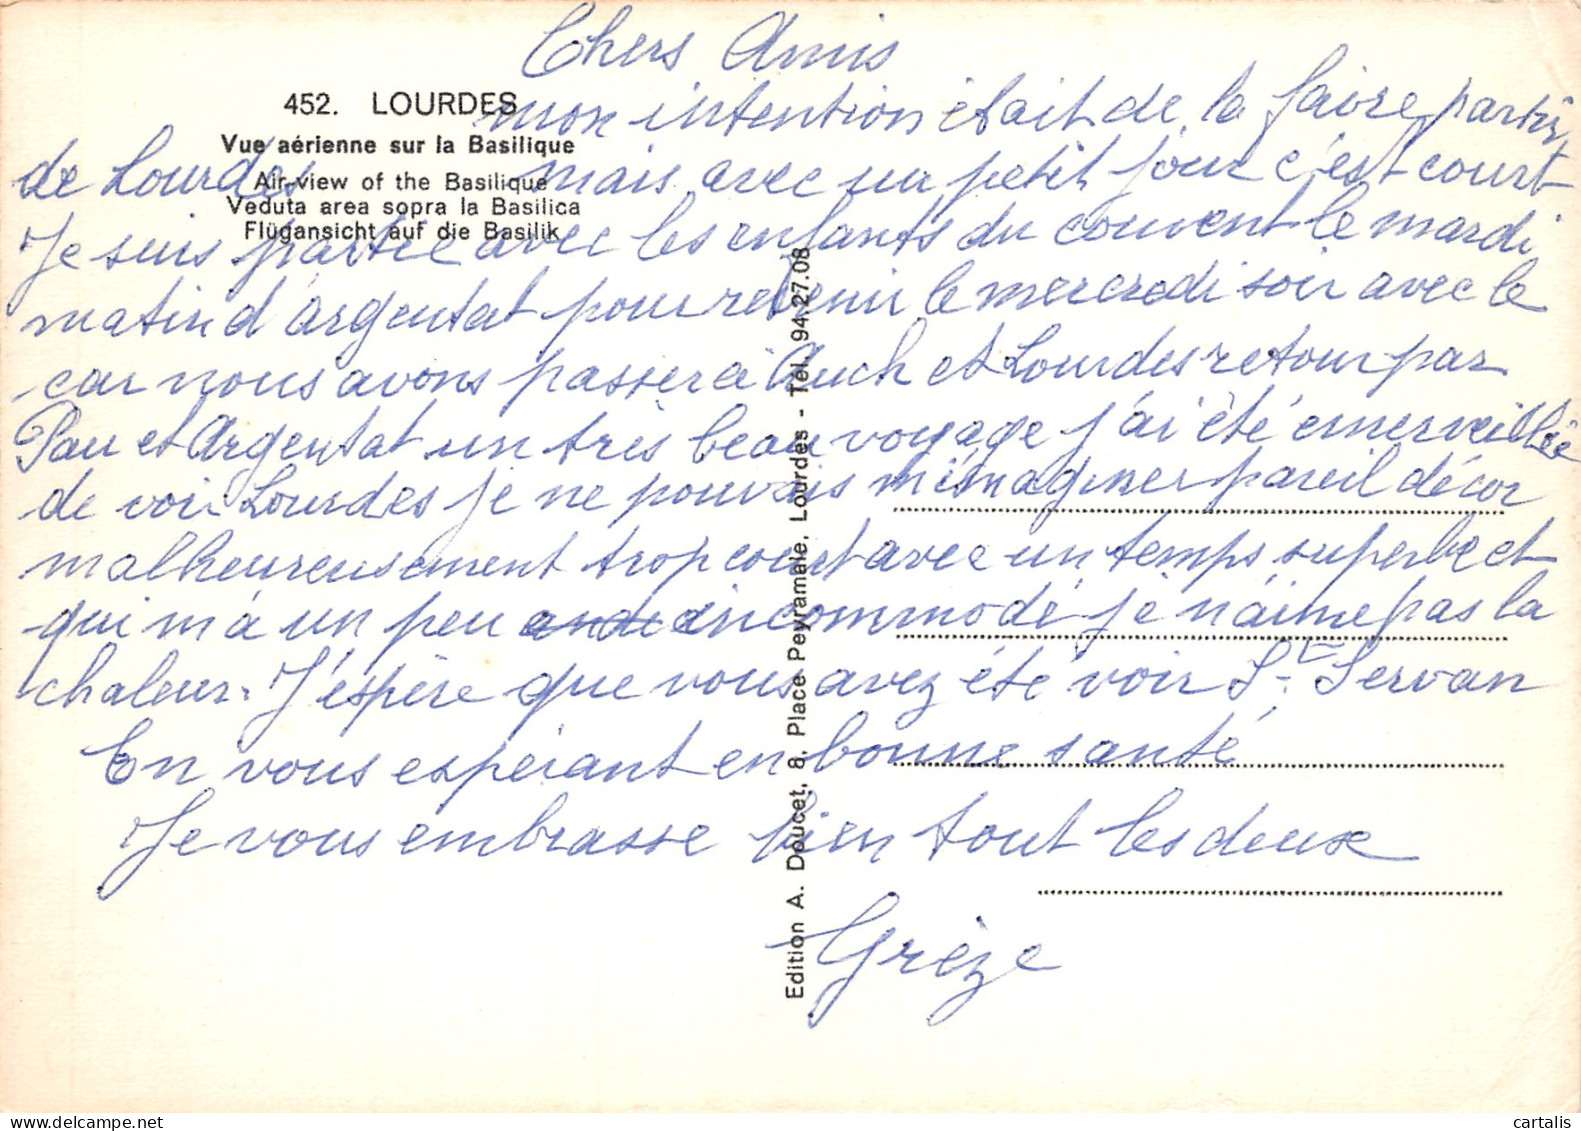 Chers Amis
452. LOURDES
mon intention était de la faire partir
Vue aérienne sur la Basilique
Air-view of the Basilique
Veduta area sopra la Basilica
Flügansicht auf die Basilik
de Lourdes mais avec un petit jour c'est court
Je suis partie avec les enfants du couvent le mardi
matin d'argentat pour revenir le mercredi soir avec le
car nous avons passer à Auch et Lourdes retour par
Pau et Argentat un très beau voyage j'ai été émerveillée
de voir Lourdes je ne pouvais m'ésnaginer pareil décor
malheureusement trop court avec un temps superbe et
qui m'a un peu incommodé je n'aime pas la
chaleur. J'espère que vous avez été voir Ste Servan
En vous espérant en bonne santé
Je vous embrasse bien tout les deux
Grèze
Edition A. Doucet, 8, Place Peyramale, Lourdes - Tél. 94.27.08
delcampe.net
cartalis